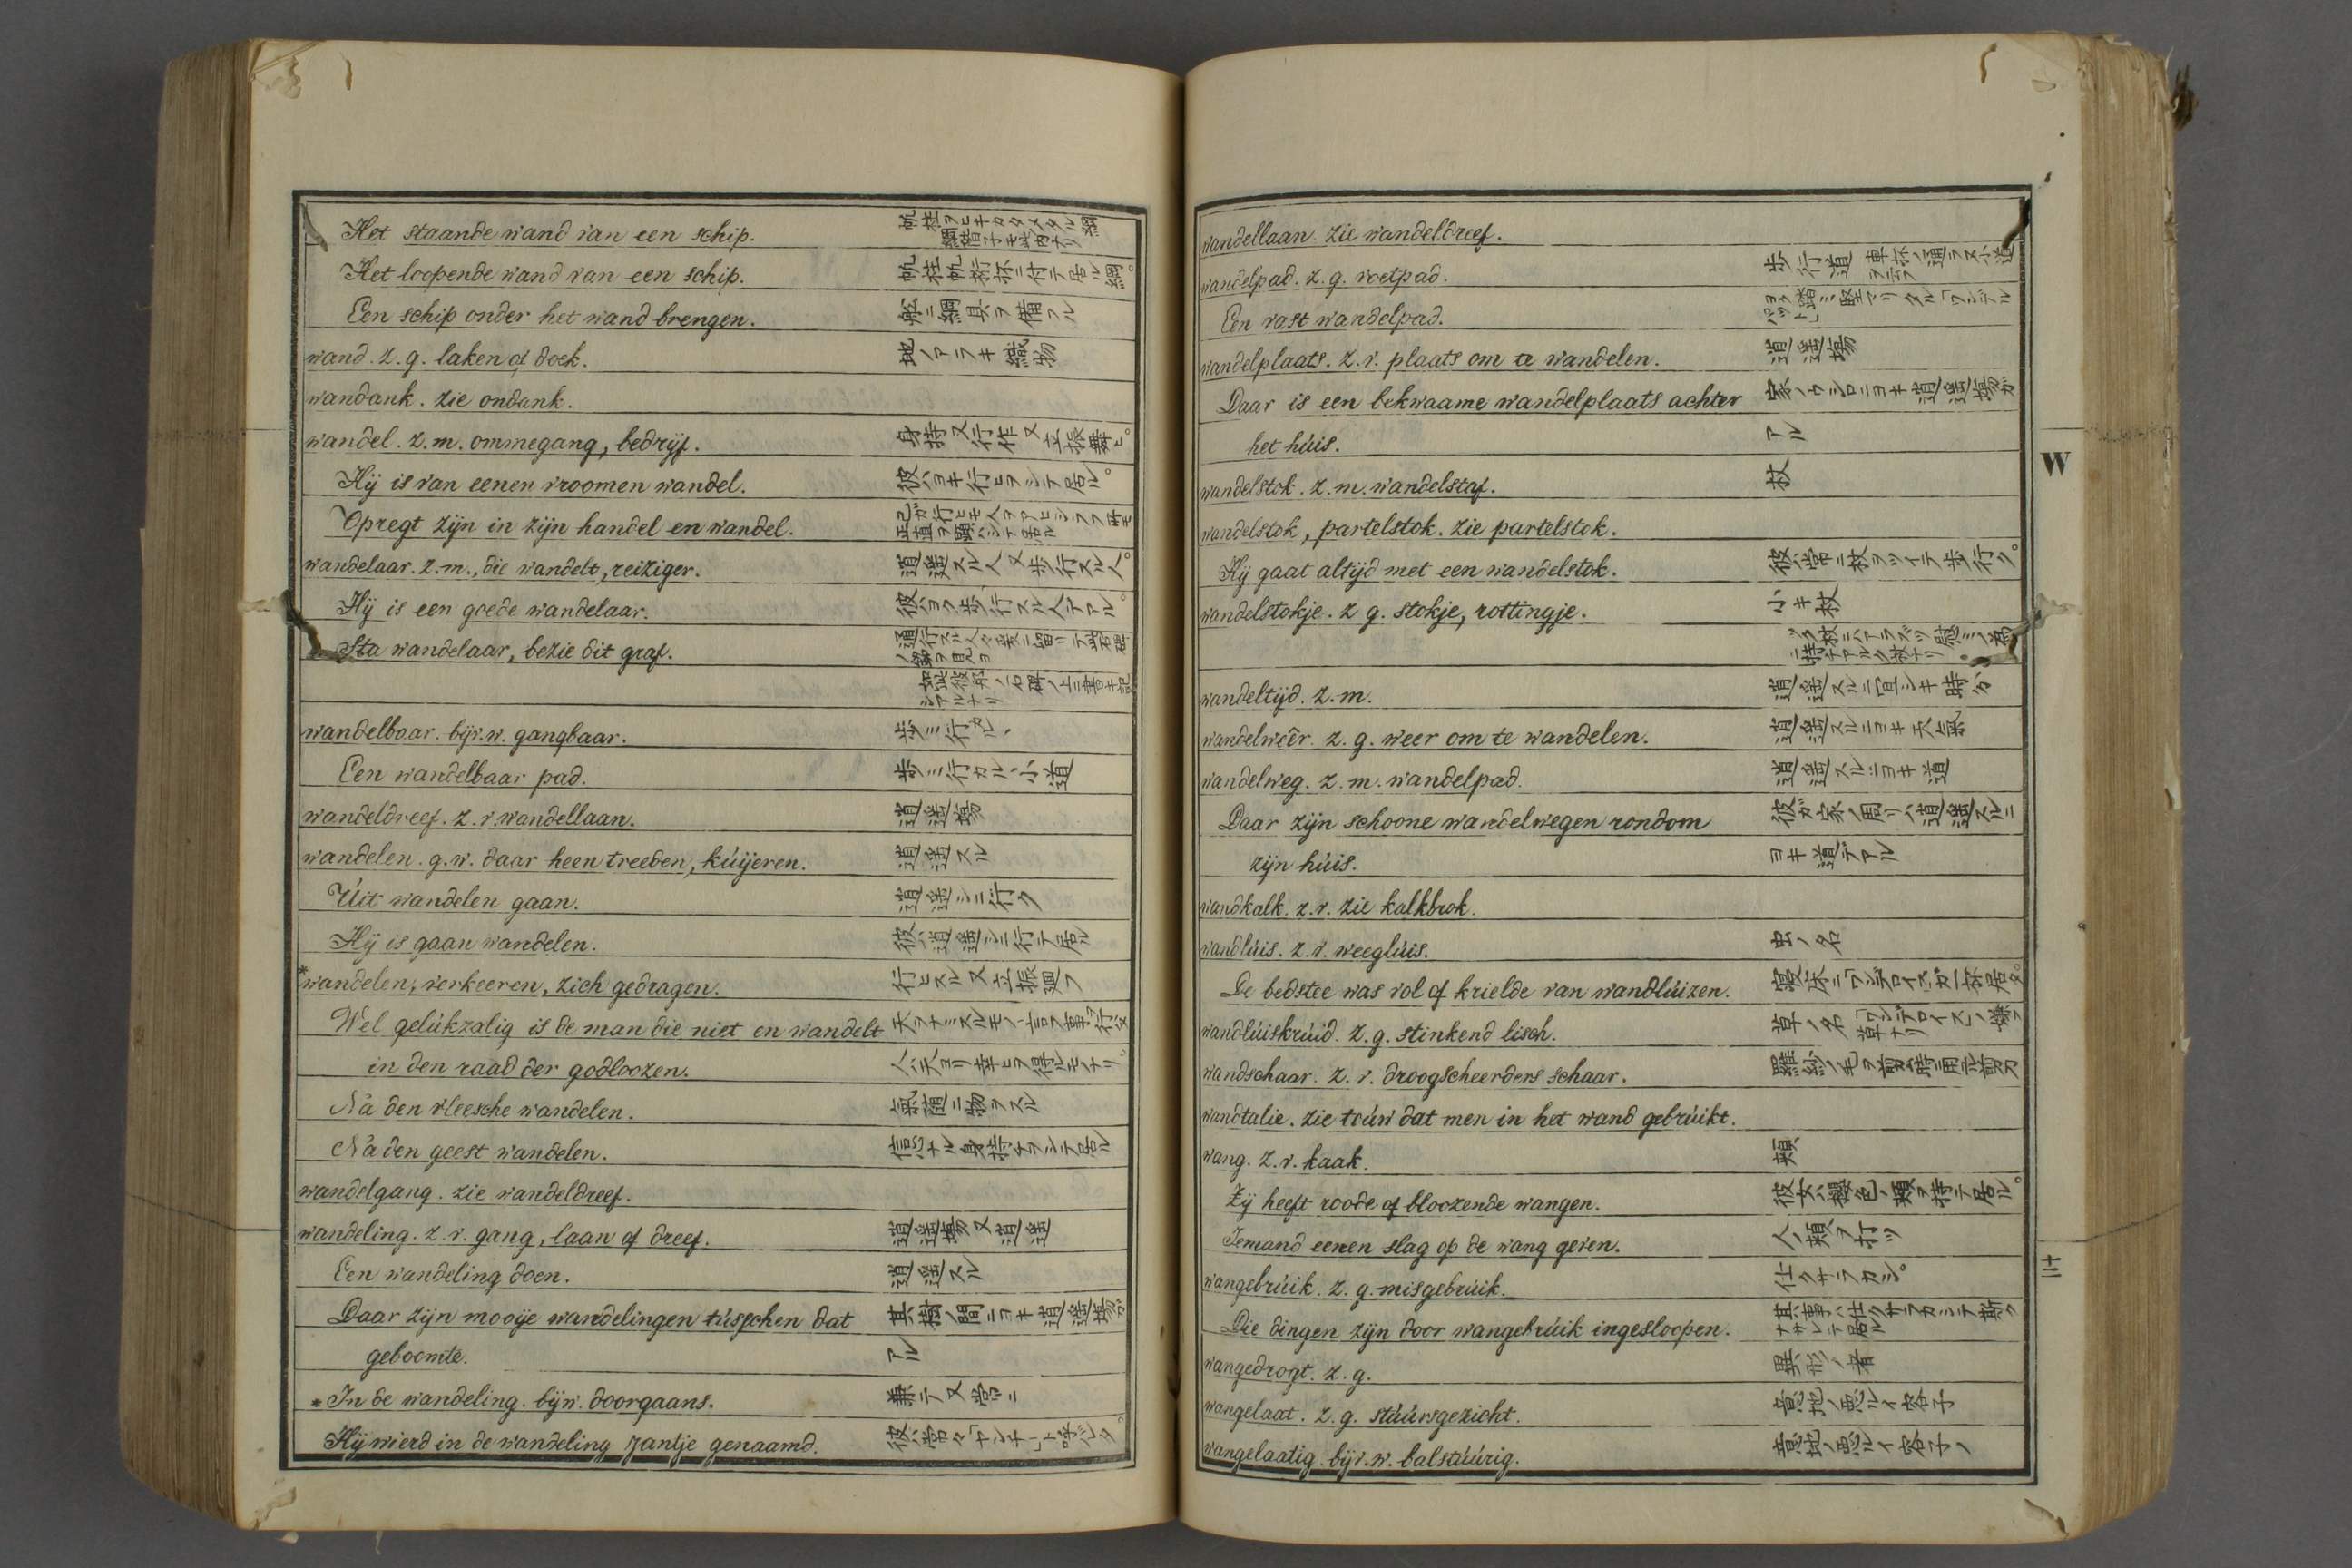 Het staande wand van een schip. 帆柱ヲヒキカタメタル綱
Het loopende wand van een schip. 帆柱帆桁抔ニ付テ居ル綱。
Een schip onder het wand brengen. 舩ニ綱具ヲ備フル
wand. z. g. laken of doek. 地ノアラキ織物
wandank. zie ondank.
wandel. z. m. ommegang, bedrijf. 身持又行作又立振舞ヒ。
Hij is van eenen vroomen wandel. 彼ハヨキ行ヒヲシテ居ル。
Opregt zijn in zijn handel en wandel.
wandelaar. z. m., die wandelt, reiziger. 逍遥スル人又歩行スル人。
Hij is een goede wandelaar. 彼ハヨク歩行スル人デアル。
Sta wandelaar, bezie dit graf.
wandelbaar. bijv. w. gangbaar. 歩ミ行カル丶
Een wandelbaar pad. 歩ミ行カル丶小道
wandeldreef. z. v. wandellaan. 逍遥場
wandelen. g. w. daar heen treeden, kúijeren. 逍遥スル
Úit wandelen gaan. 逍遥シニ行ク
Hij is gaan wandelen. 彼ハ逍遥シニ行テ居ル
*wandelen, verkeeren, zich gedragen. 行ヒスル又立振廻フ
Wel gelúkzalig is de man die niet en wandelt
in den raad der godloozen. 人ハ天ヨリ幸ヒヲ得ルモノナリ。
Ná den vleesche wandelen. 氣随ニ物ヲスル
Ná den geest wandelen. 信心ナル身持チヲシテ居ル
wandelgang. zie wandeldreef.
wandeling. z. v. gang, laan of dreef. 逍遥場又逍遥
Een wandeling doen. 逍遥スル
Daar zijn mooije wandelingen tússchen dat 其樹ノ間ニヨキ逍遥場ガ
geboomte. アル
* In de wandeling. bijw. doorgaans. 兼テ又常ニ
Hij wierd in de wandeling Jantje genaamd. 彼ハ常々「ヤンチー」ト呼レタ。
wandellaan. zie wandeldreef.
wandelpad. z. g. voetpad. 歩行道 車抔ノ通ラヌ小道ヲ云フ
Een vast wandelpad.
wandelplaats. z. v. plaats om te wandelen. 逍遥場
Daar is een bekwaame wandelplaats achter 家ノウシロニヨキ逍遥場ガ
het húis. アル
wandelstok. z. m. wandelstaf. 杖
wandelstok, partelstok. zie partelstok.
Hij gaat altijd met een wandelstok. 彼ハ常ニ杖ヲツイテ歩行ク。
wandelstokje. z g. stokje, rottingje. 小キ杖
wandeltijd. z. m. 逍遥スルニ宜シキ時分
wandelweêr. z. g. weer om te wandelen. 逍遥スルニヨキ天氣
wandelweg. z. m. wandelpad. 逍遥スルニヨキ道
Daar zijn schoone wandelwegen rondom 彼ガ家ノ周リハ逍遥スルニ
zijn húis. ヨキ道デアル
wandkalk. z. v. zie kalkbrok.
wandlúis. z. v. weeglúis. 虫ノ名
De bedstee was vol of krielde van wandlúizen. 寝床ニ「ワンドロイズ」ガ一杯居タ。
wandlúiskrúid. z. g. stinkend lisch.
wandschaar. z. v. droogscheerders schaar.
wandtalie. zie toúw dat men in het wand gebrúikt.
wang. z. v. kaak. 頬
Zij heeft roode of bloozende wangen. 彼女ハ櫻色ノ頬ヲ持テ居ル。
Iemand eenen slag op de wang geven. 人ノ頬ヲ打ツ
wangebrúik. z. g. misgebrúik. 仕クサラカシ。
Die dingen zijn door wangebrúik ingesloopen. 其事ハ仕クサラカシテ斯クナサレテ居ル
wangedrogt. z. g. 異形ノ者
wangelaat. z. g. stúúrsgezicht. 意地ノ悪ルイ容子
wangelaatig. bijv. w. balstúúrig. 意地ノ悪ルイ容子ノ
W